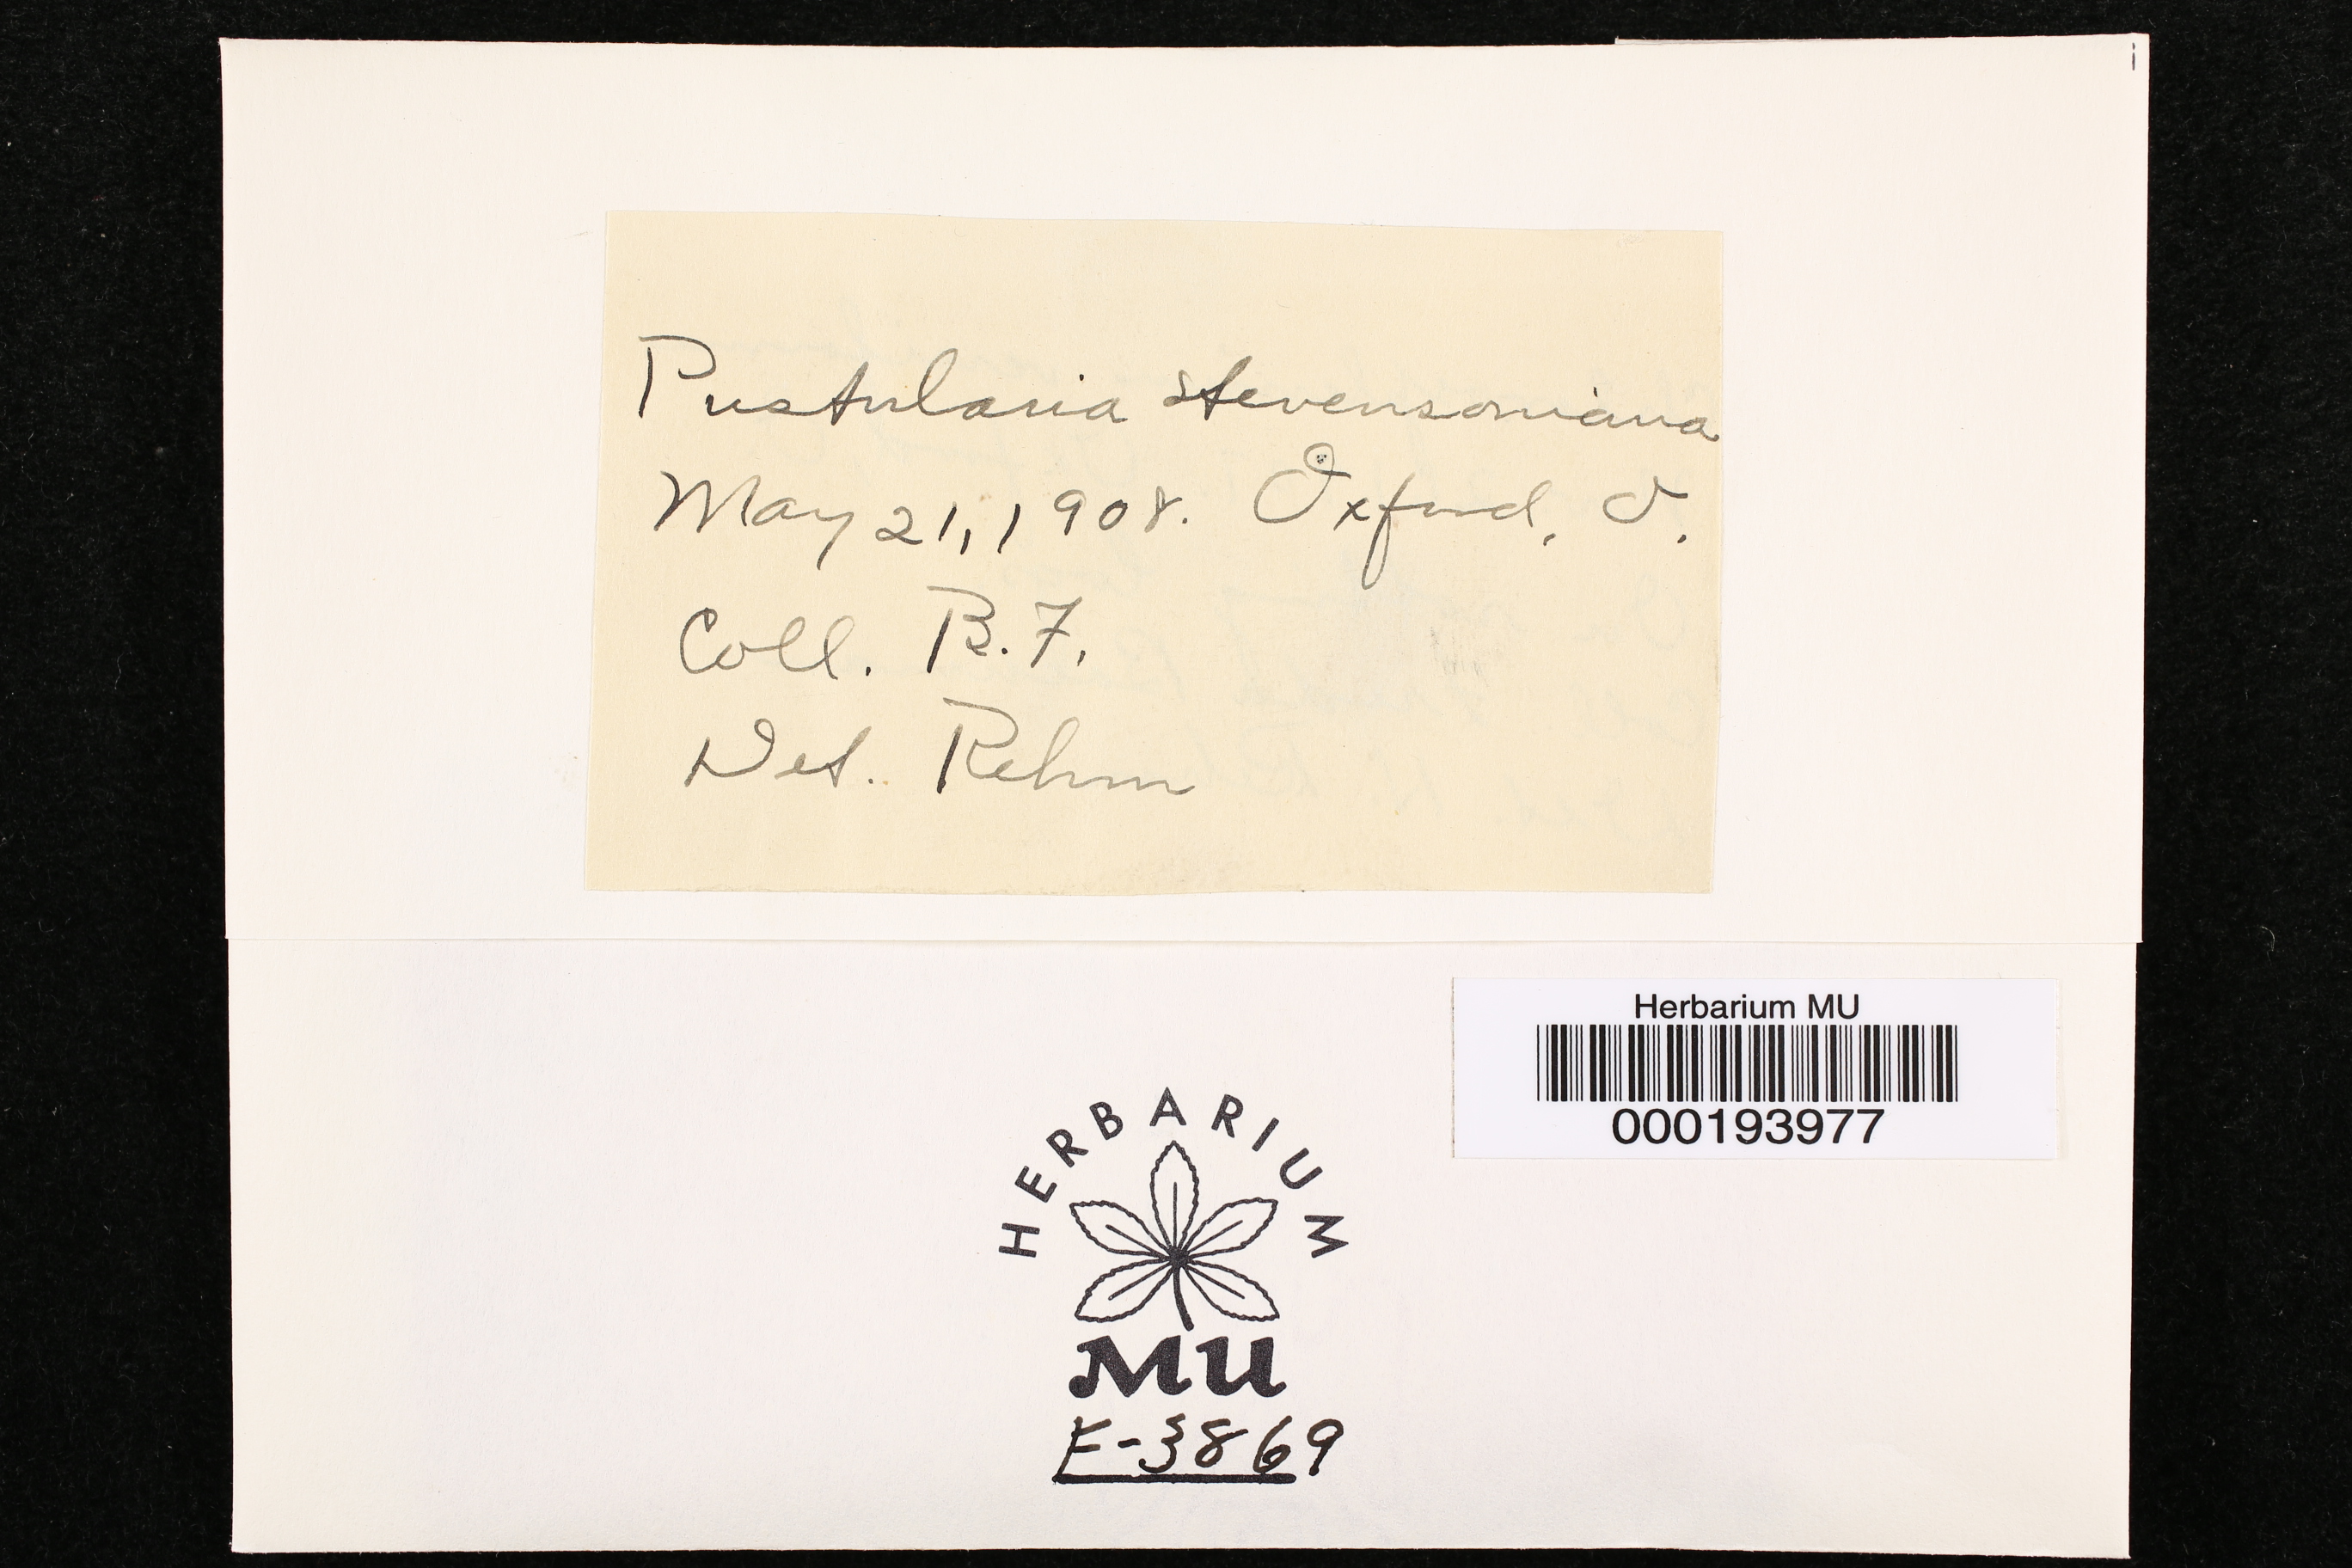 Pustularia stevensoniana
May 21, 1908. Oxford, O.
Coll. B. F.
Det. Rehm
Herbarium MU
000193977
HERBARIUM
MU
F-3869